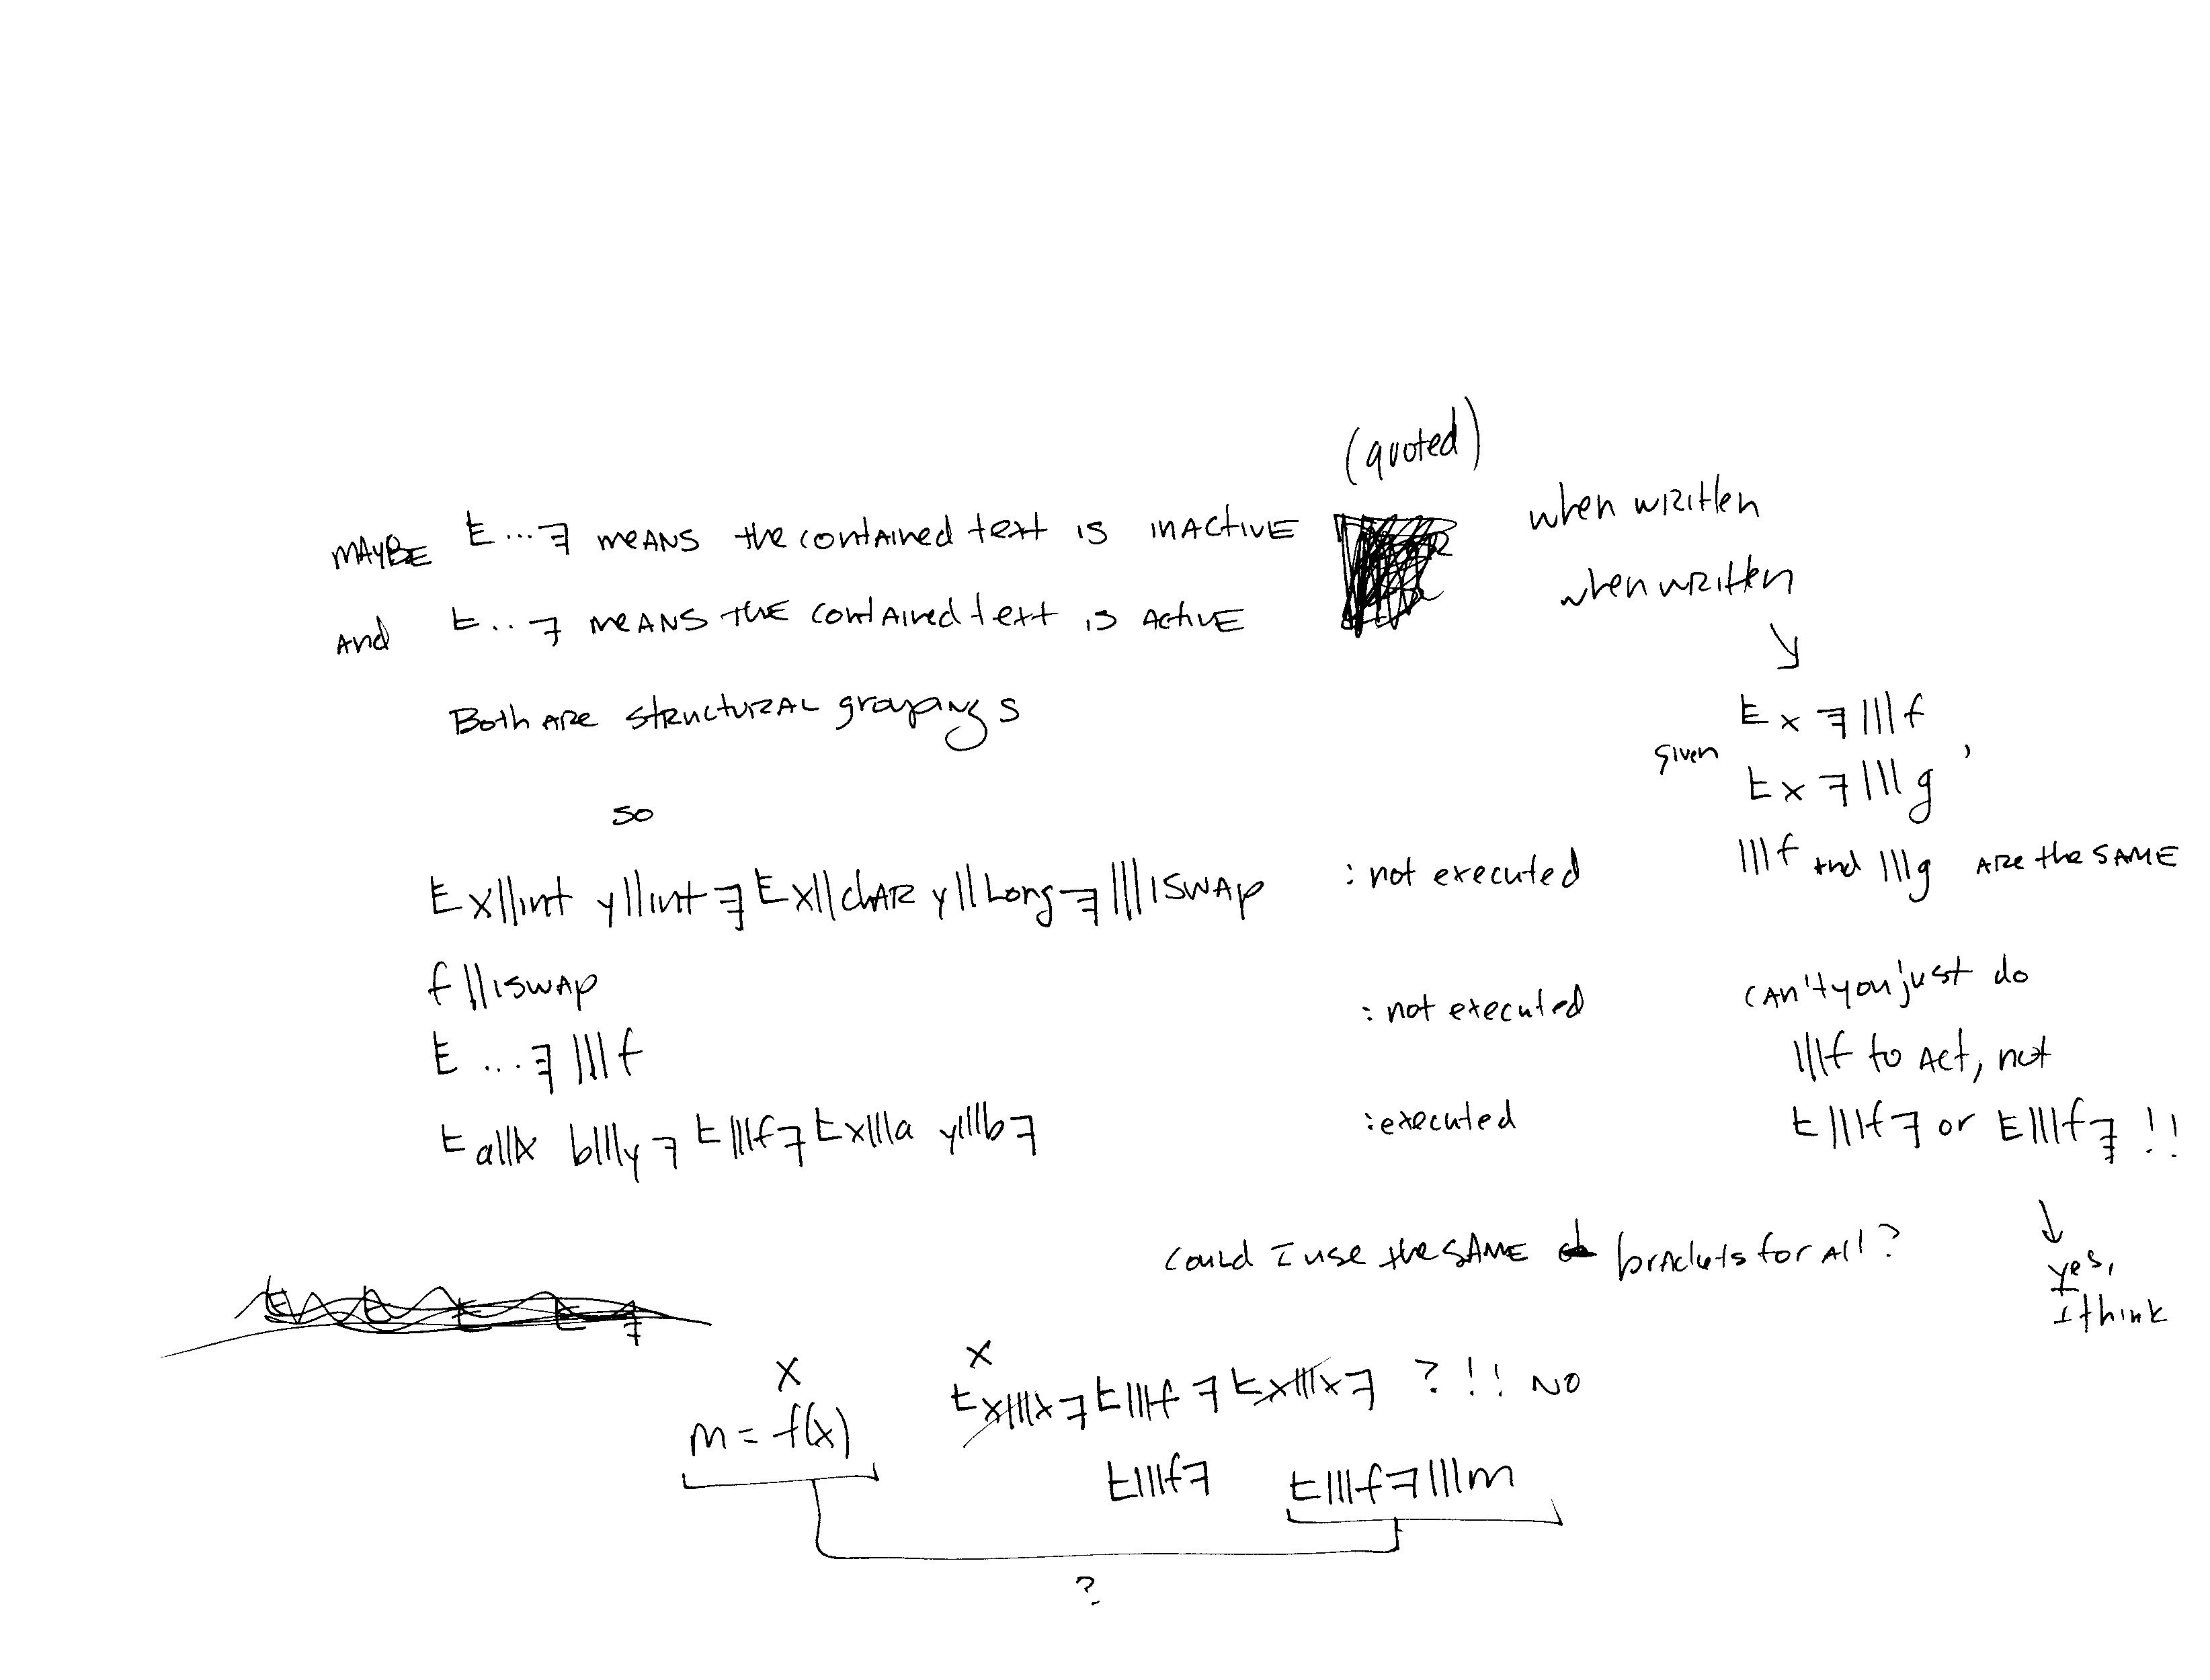 (quoted)
MAYBE E...ᆿ MEANS the contained text is INACTIVE when written
And t..ᆿ MEANS THE contained text is Active when written
Both ARE STRUCTURAL groupings
so
E x||int y||int ᆿ E x||chAR y||Long ᆿ |||ISWAP : not executed
f||ISWAP
E ... ᆿ |||f : not executed
t a|||x b|||y ᆿ t |||f ᆿ t x|||a y|||b ᆿ :executed
E x ᆿ |||f
given t x ᆿ |||g ,
|||f and |||g ARE the SAME
CAN'T you just do
|||f to Act, not
t |||f ᆿ or E |||f ᆿ !!
yes,
I think
could I use the SAME brackets for All?
x
m = f(x)
x
t x|||x ᆿ t |||f ᆿ t x|||x ᆿ ? !! NO
t |||f ᆿ t |||f ᆿ |||m
?